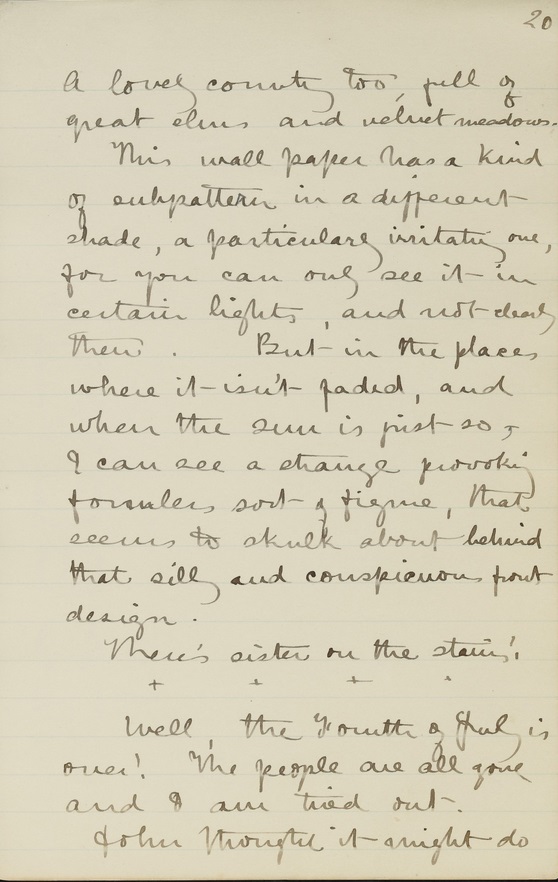 20
A lovely country too, full of
great elms and velvet meadows.
This wall paper has a kind
of subpattern in a different
shade, a particularly irritating one,
for you can only see it in
certain lights, and not clearly
then. But in the places
where it isn't faded, and
when the sun is just so,
I can see a strange provoking
formless sort of figure, that
seems to skulk about behind
that silly and conspicuous front
design.
There's sister on the stairs!
+ + + +
Well, the Fourth of July is
over! The people are all gone
and I am tired out.
John thought it might do